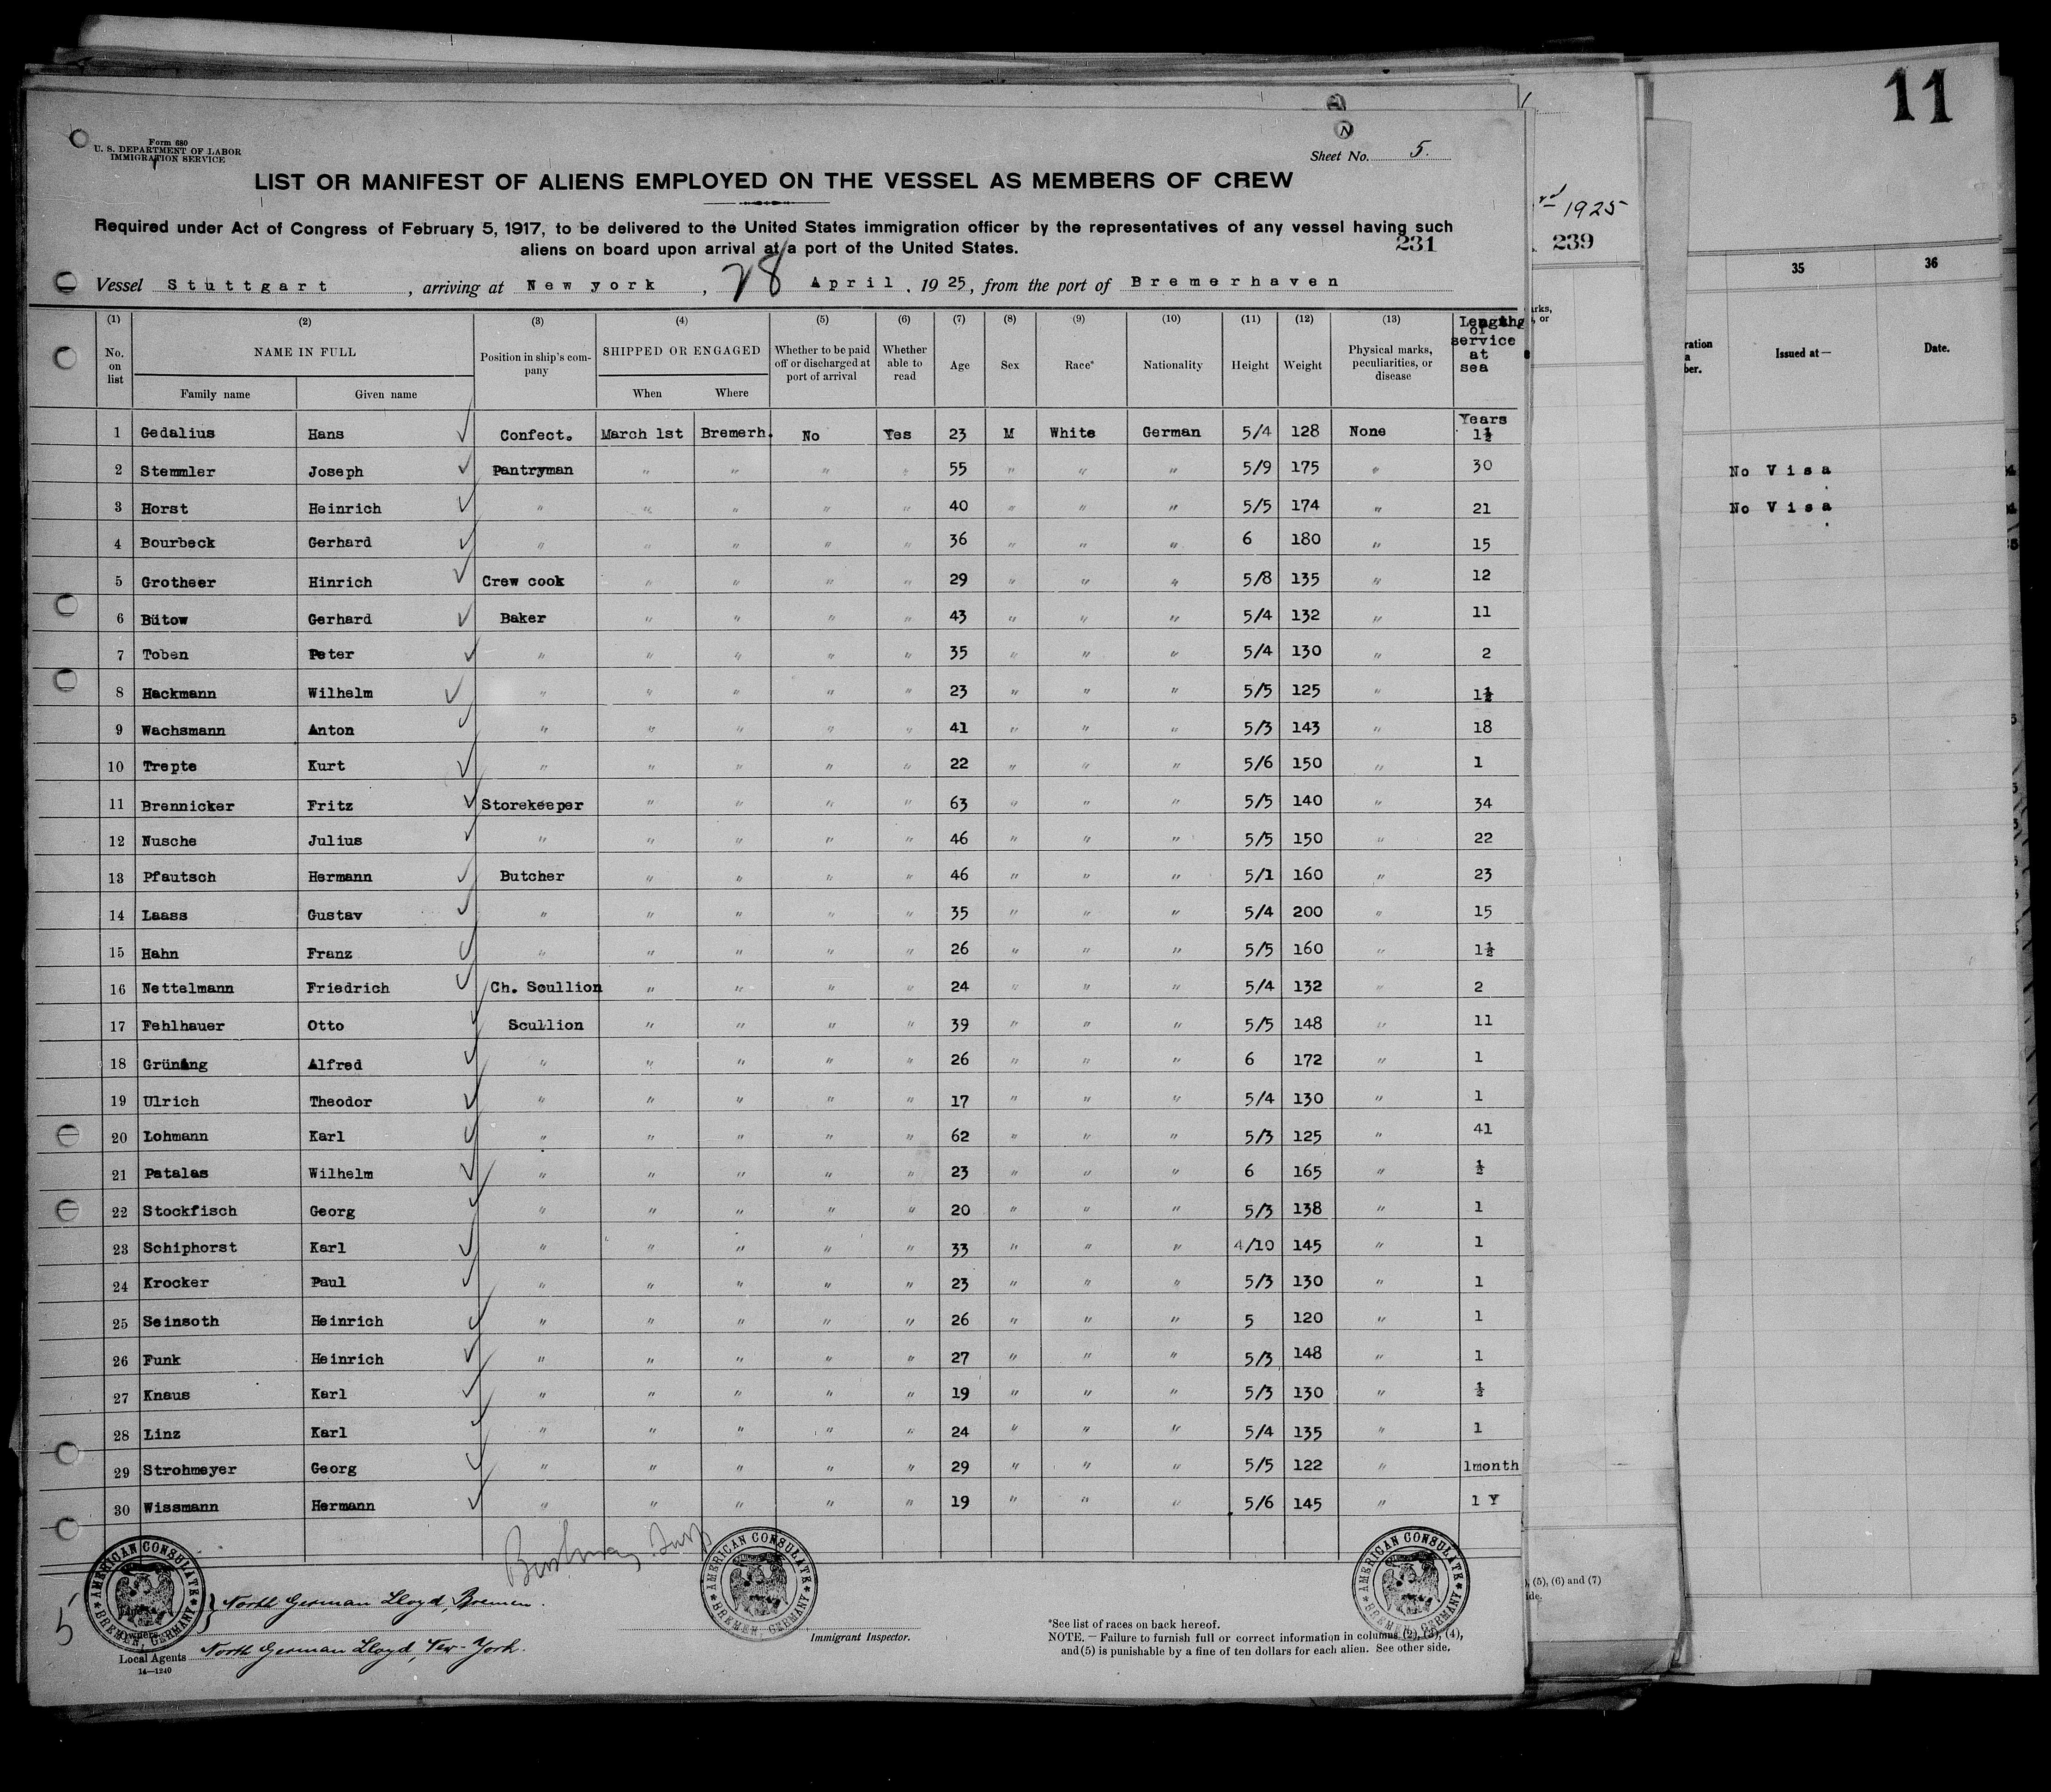 11
Form 680
U. S. DEPARTMENT OF LABOR
IMMIGRATION SERVICE
N
Sheet No. 5.
LIST OR MANIFEST OF ALIENS EMPLOYED ON THE VESSEL AS MEMBERS OF CREW
Required under Act of Congress of February 5, 1917, to be delivered to the United States immigration officer by the representatives of any vessel having such
aliens on board upon arrival at a port of the United States.
231
Vessel Stuttgart, arriving at New york, 28 April, 1925, from the port of Bremerhaven
(1) (2) (3) (4) (5) (6) (7) (8) (9) (10) (11) (12) (13)
No. on list NAME IN FULL Family name Given name Position in ship's company SHIPPED OR ENGAGED When Where Whether to be paid off or discharged at port of arrival Whether able to read Age Sex Race* Nationality Height Weight Physical marks, peculiarities, or disease Length of service at sea
Years
1 Gedalius Hans Confect. March 1st Bremerh. No Yes 23 M White German 5/4 128 None 1½
2 Stemmler Joseph Pantryman " " " " 55 " " " 5/9 175 " 30
3 Horst Heinrich " " " " " 40 " " " 5/5 174 " 21
4 Bourbeck Gerhard " " " " " 36 " " " 6 180 " 15
5 Grotheer Hinrich Crew cook " " " " 29 " " " 5/8 135 " 12
6 Bütow Gerhard Baker " " " " 43 " " " 5/4 132 " 11
7 Toben Peter " " " " " 35 " " " 5/4 130 " 2
8 Hackmann Wilhelm " " " " " 23 " " " 5/5 125 " 1½
9 Wachsmann Anton " " " " " 41 " " " 5/3 143 " 18
10 Trepte Kurt " " " " " 22 " " " 5/6 150 " 1
11 Brennicker Fritz Storekeeper " " " " 63 " " " 5/5 140 " 34
12 Nusche Julius " " " " " 46 " " " 5/5 150 " 22
13 Pfautsch Hermann Butcher " " " " 46 " " " 5/1 160 " 23
14 Laass Gustav " " " " " 35 " " " 5/4 200 " 15
15 Hahn Franz " " " " " 26 " " " 5/5 160 " 1½
16 Nettelmann Friedrich Ch. Scullion " " " " 24 " " " 5/4 132 " 2
17 Fehlhauer Otto Scullion " " " " 39 " " " 5/5 148 " 11
18 Grüning Alfred " " " " " 26 " " " 6 172 " 1
19 Ulrich Theodor " " " " " 17 " " " 5/4 130 " 1
20 Lohmann Karl " " " " " 62 " " " 5/3 125 " 41
21 Patalas Wilhelm " " " " " 23 " " " 6 165 " ½
22 Stockfisch Georg " " " " " 20 " " " 5/3 138 " 1
23 Schiphorst Karl " " " " " 33 " " " 4/10 145 " 1
24 Krocker Paul " " " " " 23 " " " 5/3 130 " 1
25 Seinsoth Heinrich " " " " " 26 " " " 5 120 " 1
26 Funk Heinrich " " " " " 27 " " " 5/3 148 " 1
27 Knaus Karl " " " " " 19 " " " 5/3 130 " ½
28 Linz Karl " " " " " 24 " " " 5/4 135 " 1
29 Strohmeyer Georg " " " " " 29 " " " 5/5 122 " 1month
30 Wissmann Hermann " " " " " 19 " " " 5/6 145 " 1 Y
AMERICAN CONSULATE BREMEN, GERMANY
AMERICAN CONSULATE BREMEN, GERMANY
AMERICAN CONSULATE BREMEN, GERMANY
5
Owners
North German Lloyd, Bremen.
Local Agents North German Lloyd, New-York.
14—1240
Immigrant Inspector.
*See list of races on back hereof.
NOTE.—Failure to furnish full or correct information in columns (2), (3), (4),
and (5) is punishable by a fine of ten dollars for each alien. See other side.
1925
239
, or
, (5), (6) and (7)
35 36
Issued at— Date.
No Visa
No Visa